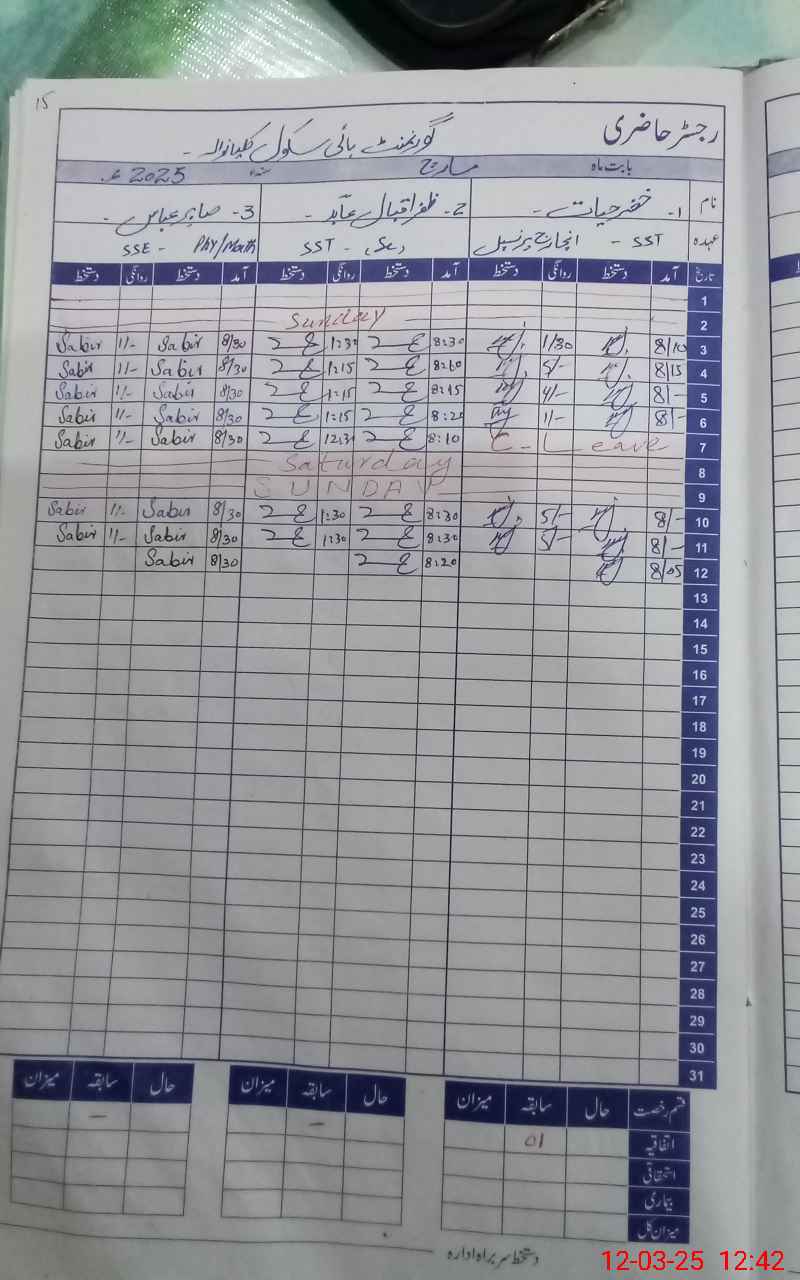 15
رجسٹر حاضری
گورنمنٹ ہائی سکول کلیانوالہ -
بابت ماہ مارچ سنہ 2025ء
نام 1- خضر حیات - 2- ظفر اقبال عابد - 3- صابر عباس -
عہدہ SST - انچارج پرنسپل SST - (Sc) SSE - Phy/Math
تاریخ آمد دستخط روانگی دستخط آمد دستخط روانگی دستخط آمد دستخط روانگی دستخط
1
2 Sunday
3 8/10 1/30 8:30 1:30 8/30 Sabir 1/- Sabir
4 8/15 5/- 1:15 8/30 Sabir 1/- Sabir
5 8/- 4/- 8:15 1:15 8/30 Sabir 1/- Sabir
6 8/- 1/- 8:20 1:15 8/30 Sabir 1/- Sabir
7 C-Leave 8:10 12:30 8/30 Sabir 1/- Sabir
8 Saturday
9 SUNDAY
10 8/- 5/- 8:30 1:30 8/30 Sabir 1/- Sabir
11 8/- 5/- 8:30 1:30 8/30 Sabir 1/- Sabir
12 8/05 8:20 8/30 Sabir
13
14
15
16
17
18
19
20
21
22
23
24
25
26
27
28
29
30
31
قسم رخصت حال سابقہ میزان حال سابقہ میزان حال سابقہ میزان
اتفاقیہ 01 - -
استحقاقی
بیماری
میزان کل
دستخط سربراہ ادارہ
12-03-25 12:42